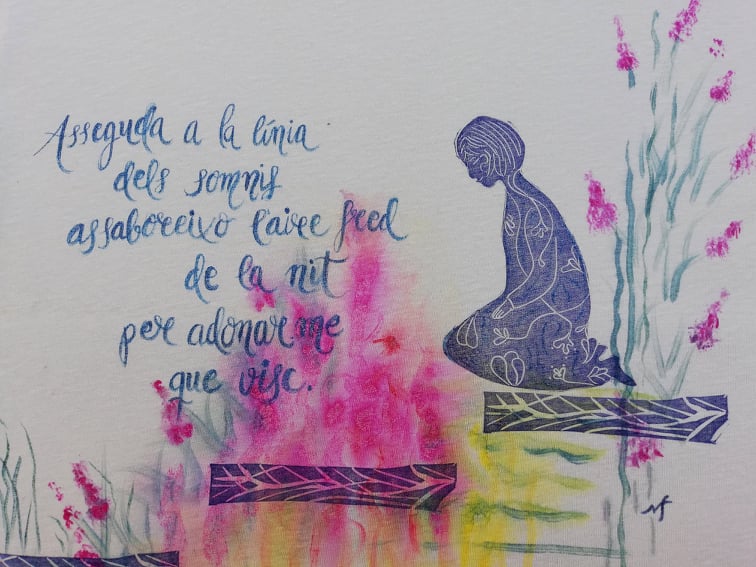 Asseguda a la línia
dels somnis
assaboreixo l'aire fred
de la nit
per adonar me
que visc.